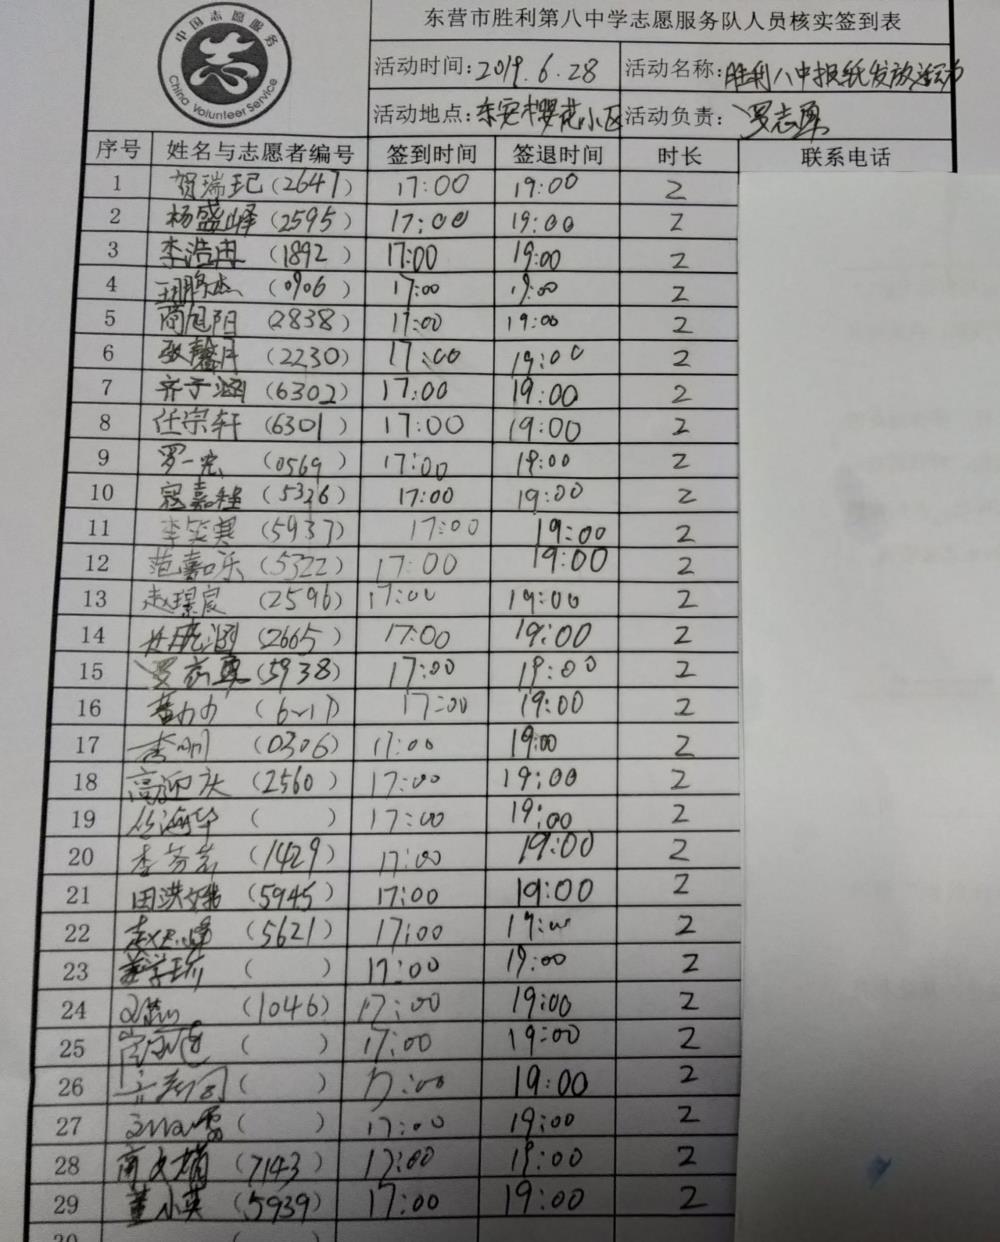 中国志愿服务
China Volunteer Service
东营市胜利第八中学志愿服务队人员核实签到表
活动时间:2019.6.28 活动名称:胜利八中报纸发放活动
活动地点:东安樱花小区 活动负责:罗志勇
序号 姓名与志愿者编号 签到时间 签退时间 时长 联系电话
1 贺瑞玘(2647) 17:00 19:00 2
2 杨盛峄(2595) 17:00 19:00 2
3 李浩冉(1892) 17:00 19:00 2
4 (0906) 17:00 19:00 2
5 商旭阳(2838) 17:00 19:00 2
6 张馨月(2230) 17:00 19:00 2
7 齐子涵(6302) 17:00 19:00 2
8 任宗轩(6301) 17:00 19:00 2
9 罗一(0569) 17:00 19:00 2
10 寇嘉程(5326) 17:00 19:00 2
11 李笑寒(5937) 17:00 19:00 2
12 范嘉乐(5322) 17:00 19:00 2
13 赵璟宸(2596) 17:00 19:00 2
14 (2665) 17:00 19:00 2
15 罗志勇(5938) 17:00 19:00 2
16 17:00 19:00 2
17 李(0306) 17:00 19:00 2
18 高迎庆(2560) 17:00 19:00 2
19 ( ) 17:00 19:00 2
20 李芬芳(1429) 17:00 19:00 2
21 田洪娥(5945) 17:00 19:00 2
22 赵(5621) 17:00 19:00 2
23 ( ) 17:00 19:00 2
24 (1046) 17:00 19:00 2
25 ( ) 17:00 19:00 2
26 ( ) 17:00 19:00 2
27 ( ) 17:00 19:00 2
28 商文娟(7143) 17:00 19:00 2
29 董小英(5939) 17:00 19:00 2
30 ( )